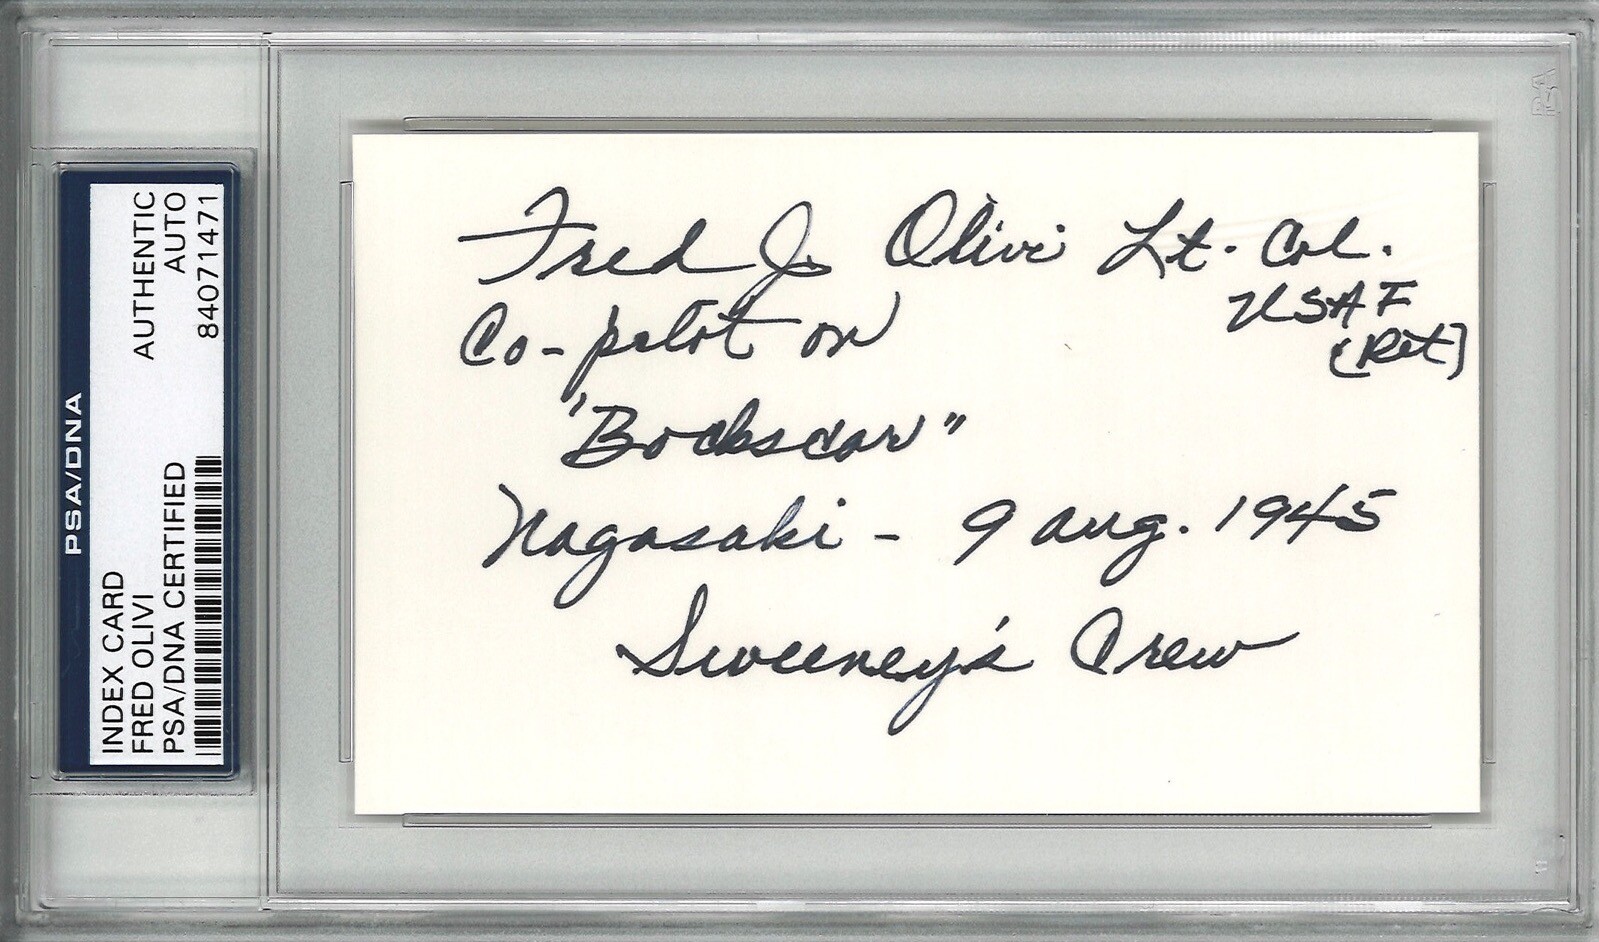 PSA/DNA
INDEX CARD AUTHENTIC
FRED OLIVI AUTO
PSA/DNA CERTIFIED 84071471
Fred J. Olivi Lt. Col.
USAF
(Ret)
Co-pilot on
"Bockscar"
Nagasaki - 9 Aug. 1945
Sweeney's Crew
PSA